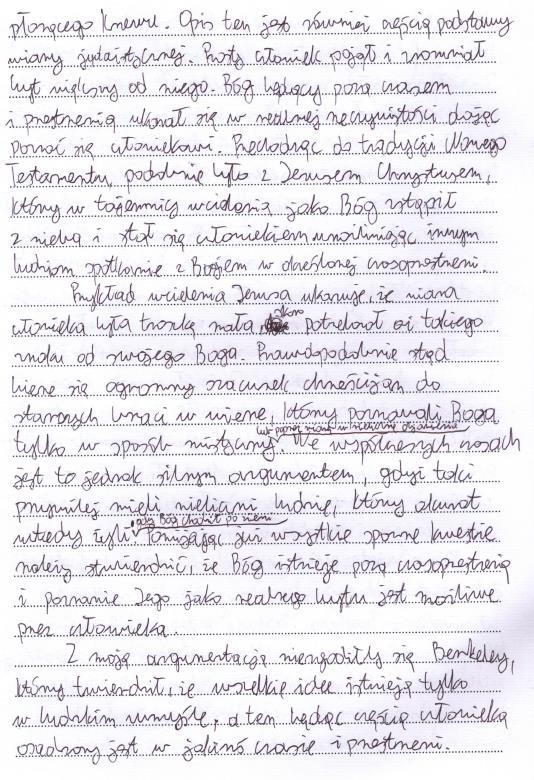 płonącego krzewu. Opis ten jest również częścią podstawy
wiary judaistycznej. Prosty człowiek pojął i zrozumiał
byt większy od niego. Bóg będący poza czasem
i przestrzenią ukazał się w realnej rzeczywistości dążąc
poznać się człowiekowi. Przechodząc do tradycji Nowego
Testamentu, podobnie było z Jezusem Chrystusem,
który w tajemnicy wcielenia jako Bóg zstąpił
z nieba i stał się człowiekiem umożliwiając innym
ludziom spotkanie z Bogiem w określonej czasoprzestrzeni.
Przykład wcielenia Jezusa ukazuje, że wiara
człowieka była troszkę mała, skoro potrzebował on takiego
znaku od swojego Boga. Prawdopodobnie stąd
bierze się ogromny szacunek chrześcijan do
starszych braci w wierze, którzy poznawali Boga
tylko w sposób mistyczny. We współczesnych czasach
jest to jednak silnym argumentem, gdyż taki
przywilej mieli nieliczni ludzie, którzy akurat
wtedy żyli gdy Bóg chodził po ziemi. Pomijając już wszystkie sporne kwestie
należy stwierdzić, że Bóg istnieje poza czasoprzestrzenią
i poznanie Jego jako realnego bytu jest możliwe
przez człowieka.
Z moją argumentacją niezgodziłby się Berkeley,
który twierdził, że wszelkie idee istnieją tylko
w ludzkim umyśle, a ten będąc częścią człowieka
osadzony jest w jakimś czasie i przestrzeni.